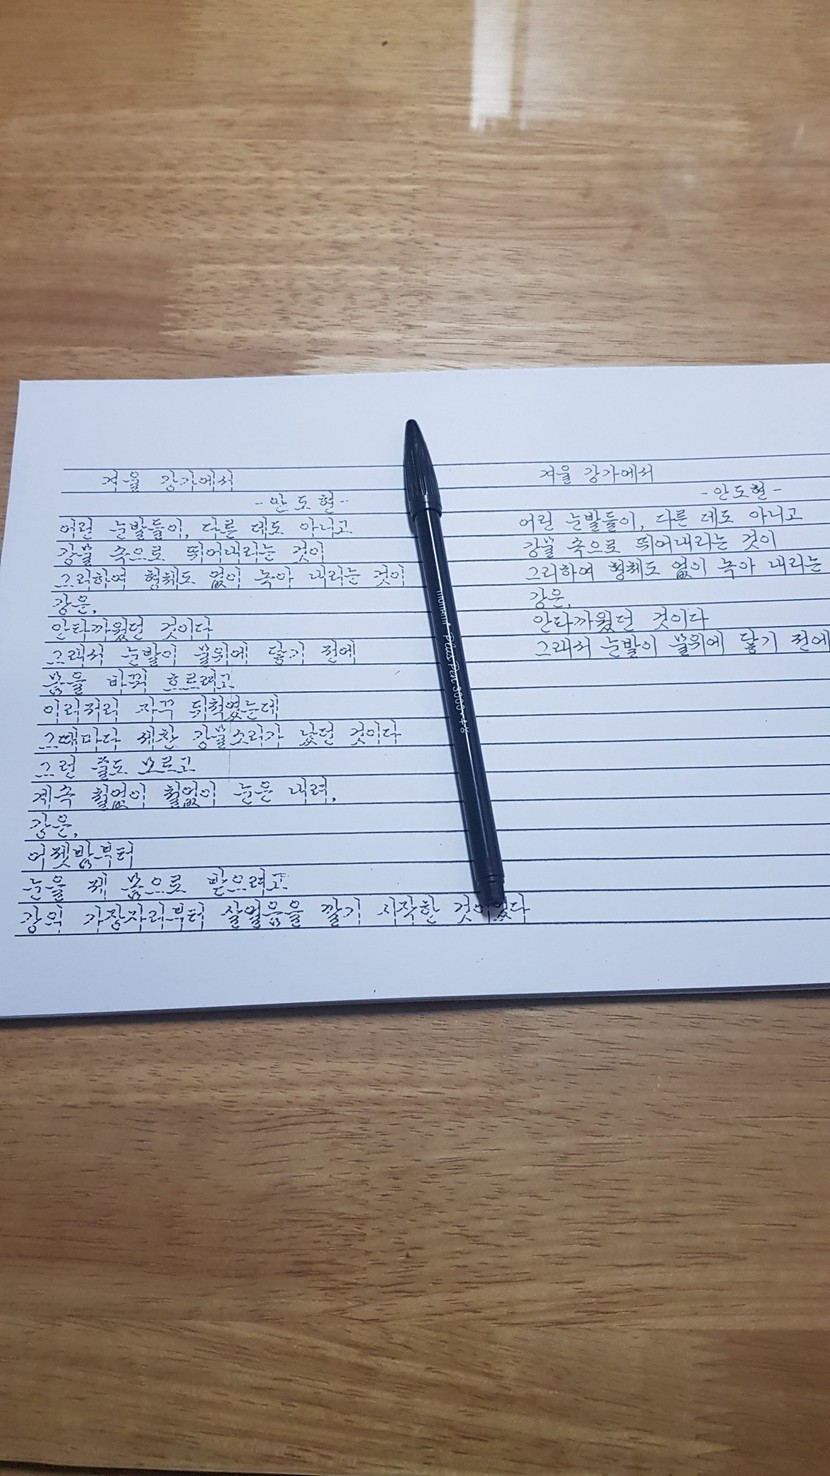 겨울 강가에서
-안도현-
어린 눈발들이, 다른 데도 아니고
강물 속으로 뛰어내리는 것이
그리하여 형체도 없이 녹아 내리는 것이
강은,
안타까웠던 것이다
그래서 눈발이 물위에 닿기 전에
몸을 바꿔 흐르려고
이리저리 자꾸 뒤척였는데
그때마다 세찬 강물소리가 났던 것이다
그런 줄도 모르고
계속 철없이 철없이 눈은 내려,
강은,
어젯밤부터
눈을 제 몸으로 받으려고
강의 가장자리부터 살얼음을 깔기 시작한 것이었다
겨울 강가에서
-안도현-
어린 눈발들이, 다른 데도 아니고
강물 속으로 뛰어내리는 것이
그리하여 형체도 없이 녹아 내리는
강은,
안타까웠던 것이다
그래서 눈발이 물위에 닿기 전에
Plus Pen 3000